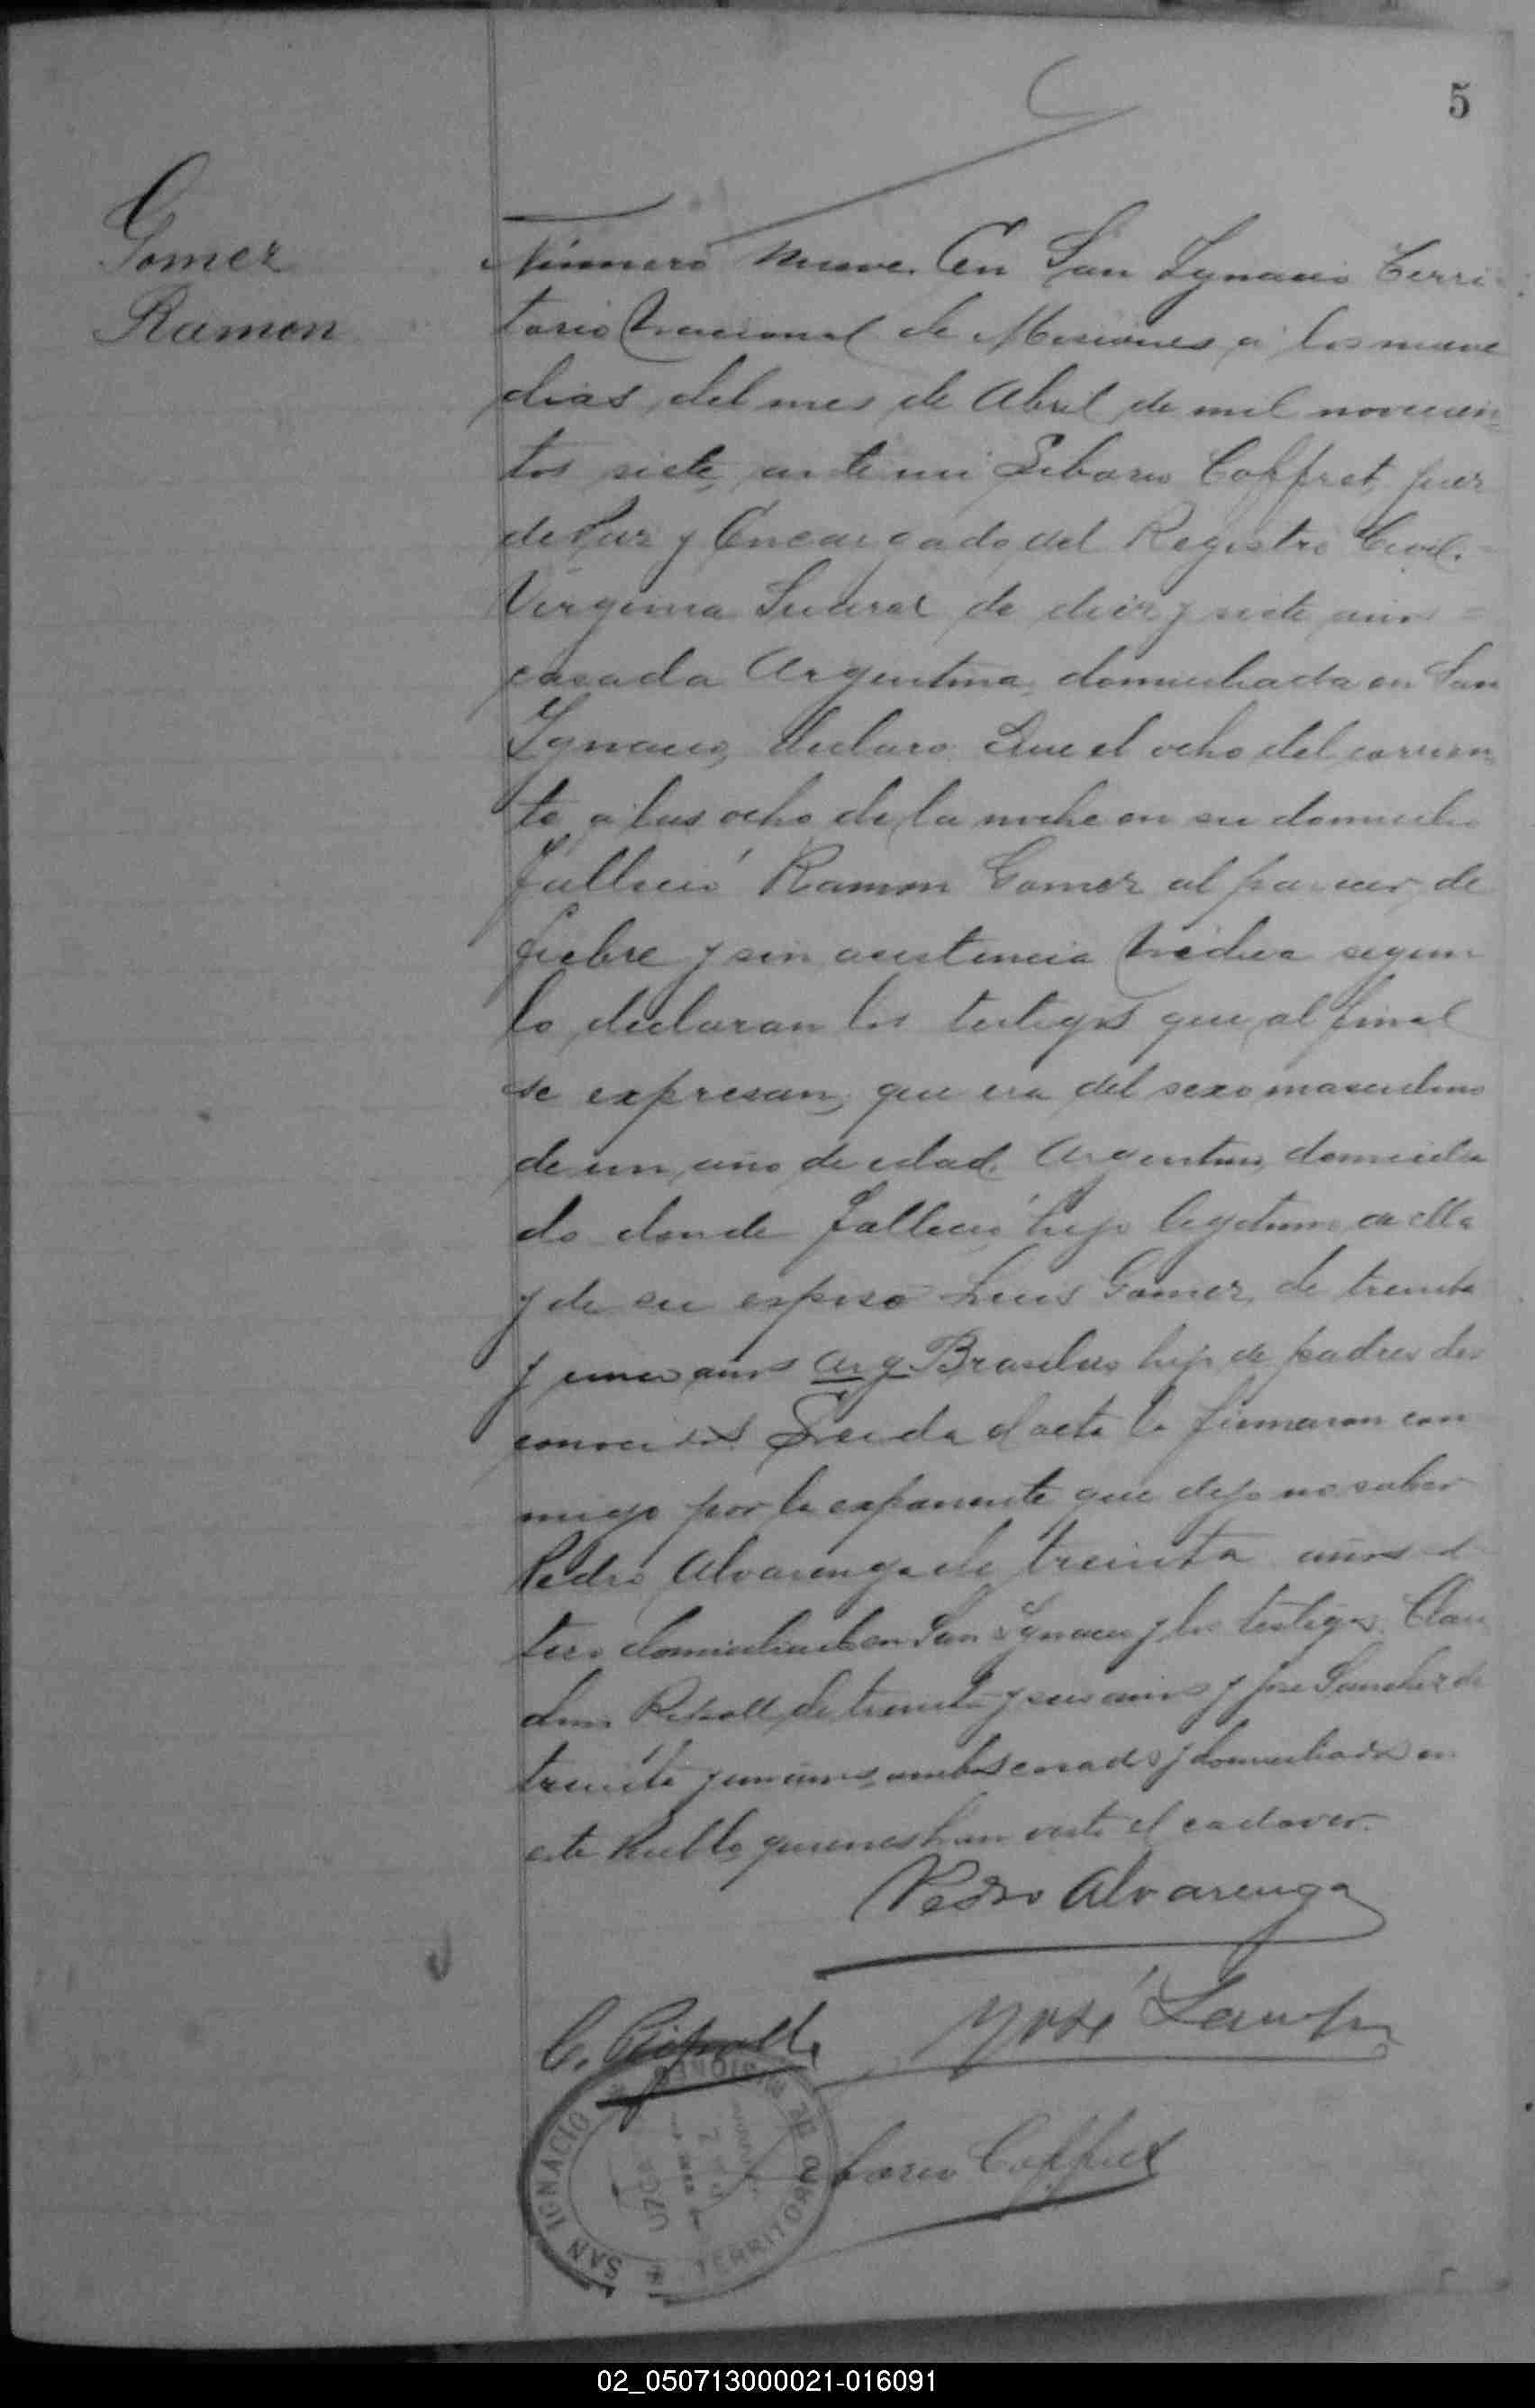 5
Gomez
Ramon
Número nueve. En San Ygnacio Terri-
torio Nacional de Misiones a los nueve
dias del mes de Abril de mil novecien-
tos siete, ante mi Liborio Coffret, juez
de Paz y Encargado del Registro Civil.
Virginia de diez y siete años
casada Argentina, domiciliada en San
Ygnacio, declaro. Que el ocho del corrien-
te a las ocho de la noche en su domicilio
falleció Ramon Gomez al parecer de
fiebre y sin asistencia Médica segun
lo declaran los testigos que al final
se expresan, que era del sexo masculino
de un año de edad. Argentino, domicilia
do donde falleció hijo legitimo de ella
y de su esposo Luis Gomez, de treinta
y años Arg. Brasilero hijo de padres des
conocidos. Leida el acta la firmaron con
migo por la exponente que dijo no saber
Pedro Alvarenga de treinta años sol
tero domiciliado en San Ygnacio y los testigos. Clau
dino Ripoll, de treinta y seis años y José Sanchez de
treinta y un años, ambos casados y domiciliados en
este Pueblo, quienes han visto el cadaver.
Pedro Alvarenga
C. Ripoll José
Liborio Coffret
SAN IGNACIO * TERRITORIO DE MISIONES
02_050713000021-016091